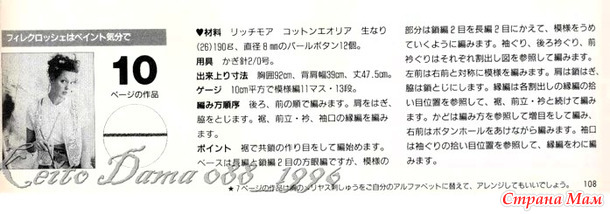 フィレクロッシェはペイント気分で
10
ページの作品
♥材料 リッチモア コットンエオリア 生なり
(26)190g、直径8mmのパールボタン12個。
用具 かぎ針2/0号。
出来上り寸法 胸囲92cm、背肩幅39cm、丈47.5cm。
ゲージ 10cm平方で模様編11マス・13段。
編み方順序 後ろ、前の順で編みます。肩をはぎ、
脇をとじます。裾、前立・衿、袖口の縁編を編み
ます。
ポイント 裾で共鎖の作り目をして編始めます。
ベースは長編と鎖編2目の方眼編ですが、模様の
部分は鎖編2目を長編2目にかえて、模様をうめ
ていくように編みます。袖ぐり、後ろ衿ぐり、前
衿ぐりはそれぞれ割出し図を参照して編みます。
左前は右前と対称に模様を編みます。肩は鎖はぎ、
脇は鎖とじにします。縁編は各割出しの縁編の拾
い目位置を参照して、裾、前立・衿と続けて編み
ます。かどは編み方を参照して増目をして編み、
右前はボタンホールをあけながら編みます。袖口
は袖ぐりの拾い目位置を参照して、縁編をわに編
みます。
Keito Dama 088 1996
★7ページの作品は胸のメリヤス刺しゅうをご自分のアルファベットに替えて、アレンジしてもいいでしょう。 108
Страна Мам